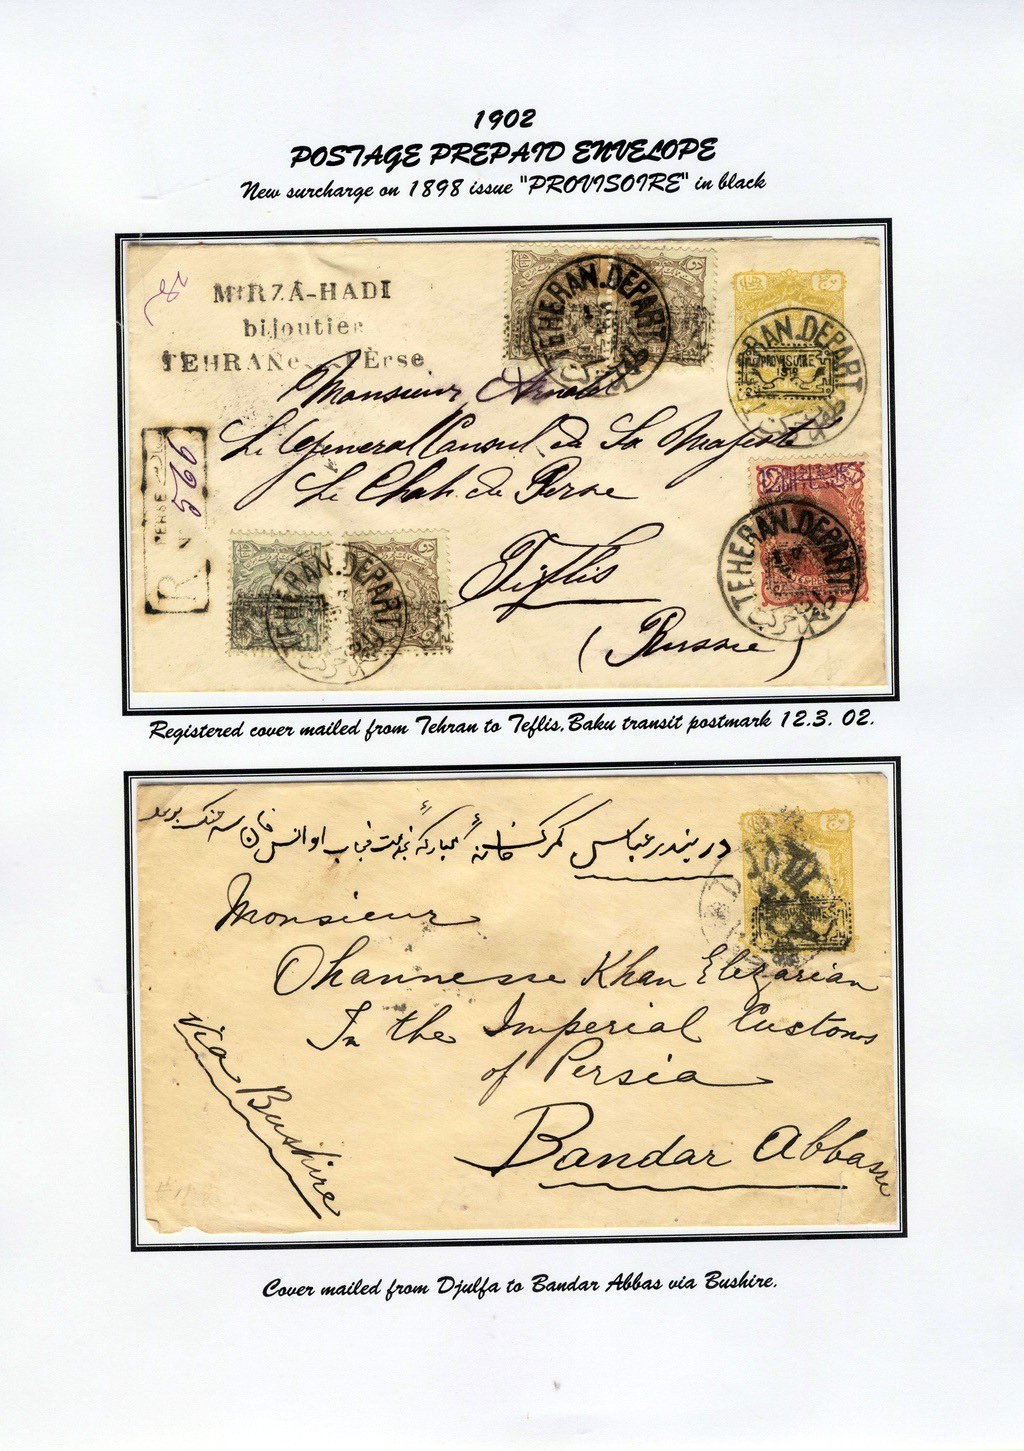 1902
POSTAGE PREPAID ENVELOPE
New surcharge on 1898 issue "PROVISOIRE" in black
MIRZA-HADI
bijoutier
TEHRAN
TEHERAN.DEPART
TEHERAN.DEPART
PROVISOIRE
1319
Monsieur Arnold
Le General Consul de Sa Majesté
Le Chah de Perse
Tiflis
(Russie)
925
PERSE
R
TEHERAN.DEPART
TEHERAN.DEPART
Registered cover mailed from Tehran to Teflis, Baku transit postmark 12.3. 02.
در بندر عباس گمرکخانه مبارکه
PROVISOIRE
Monsieur
Ohannesse Khan Elezarian
In the Imperial Customs
of Persia
Bandar Abbasse
Via Bushire
Cover mailed from Djulfa to Bandar Abbas via Bushire.